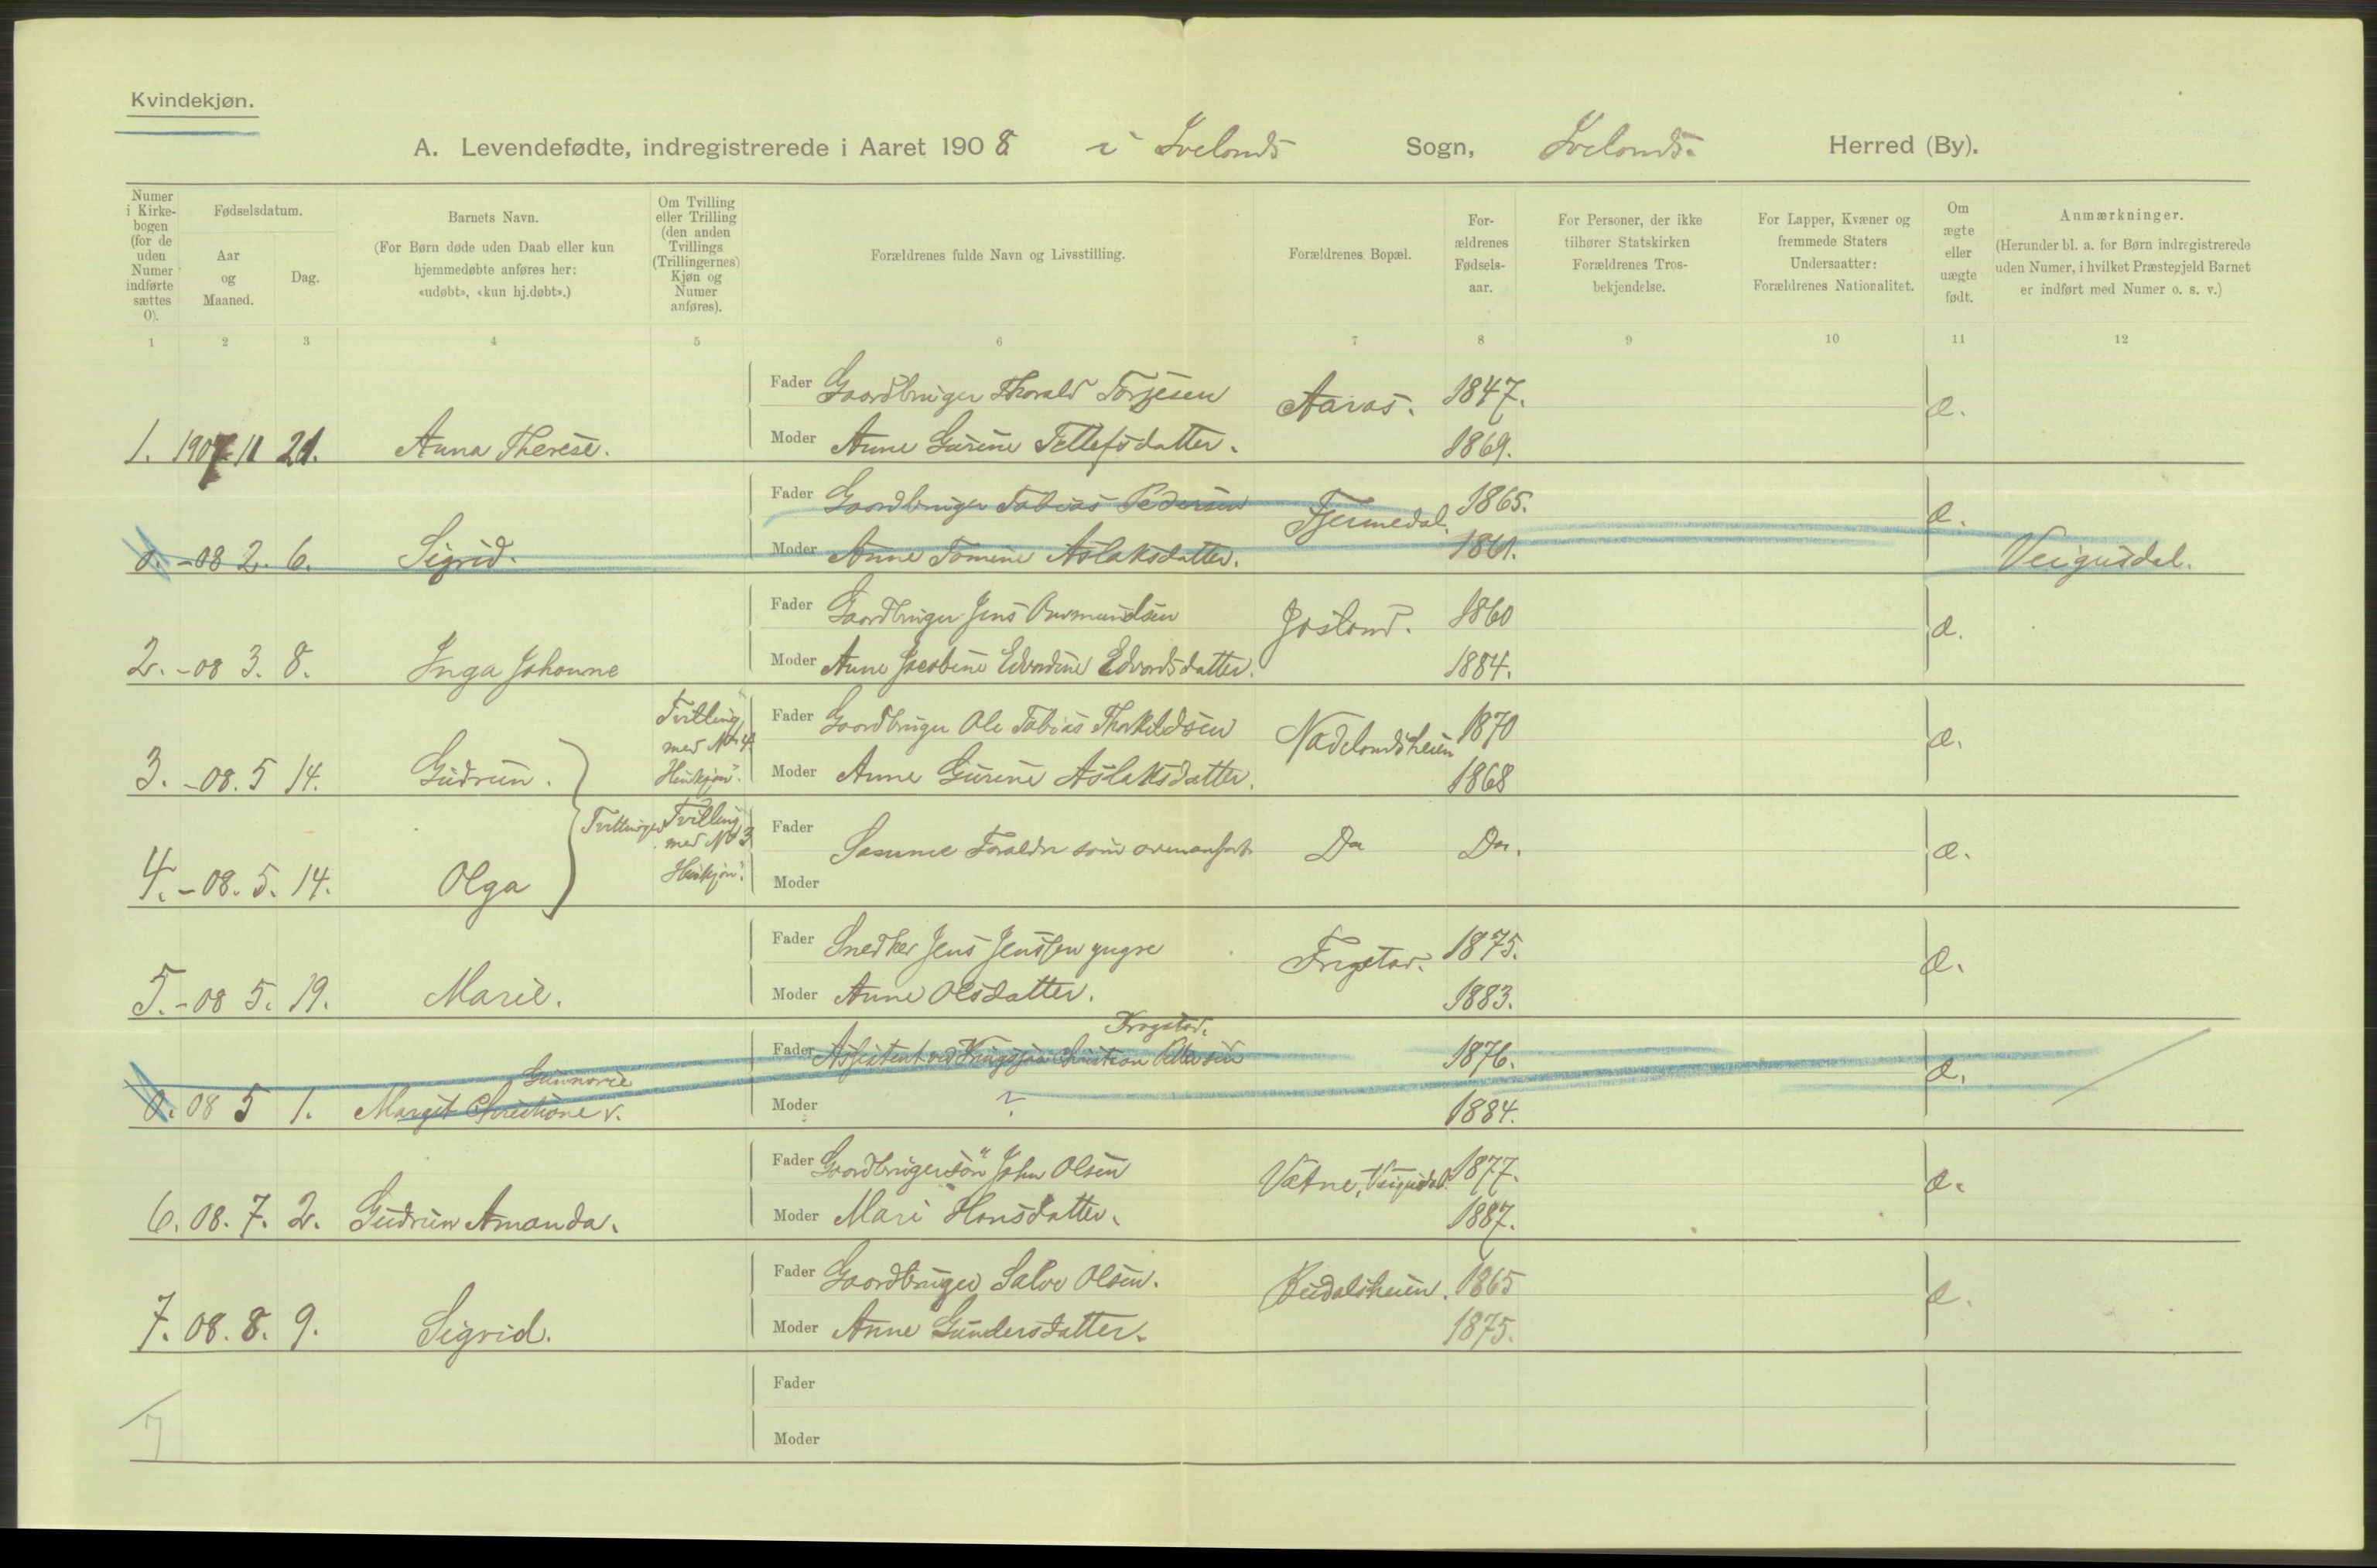 Kvindekjøn.
A. Levendefødte, indregistrerede i Aaret 1908 i Ivelands Sogn, Ivelands Herred (By).
Numer i Kirkebogen (for de uden Numer indførte sættes 0).
Fødselsdatum.
Aar og Maaned.
Dag.
Barnets Navn.
(For Børn døde uden Daab eller kun hjemmedøbte anføres her: «udøbt», «kun hj.døbt».)
Om Tvilling eller Trilling (den anden Tvillings (Trillingernes) Kjøn og Numer anføres).
Forældrenes fulde Navn og Livsstilling.
Forældrenes Bopæl.
For-ældrenes Fødsels-aar.
For Personer, der ikke tilhører Statskirken Forældrenes Tros-bekjendelse.
For Lapper, Kvæner og fremmede Staters Undersaatter: Forældrenes Nationalitet.
Om ægte eller uægte født.
Anmærkninger.
(Herunder bl. a. for Børn indregistrerede uden Numer, i hvilket Præstegjeld Barnet er indført med Numer o. s. v.)
1 2 3 4 5 6 7 8 9 10 11 12
Fader Gaardbruger Thorald Torjesen Aaras. 1847. æ.
1. 1907 11 21. Anna Therese. Moder Anne Gurine Tellefsdatter. 1869.
Fader Gaardbruger Tobias Pedersen Tjermedal. 1865. æ.
0. -08 2. 6. Sigrid. Moder Anne Tomine Aslaksdatter. 1861. Veigusdal.
Fader Gaardbruger Jens Josland. 1860 æ.
2. -08 3. 8. Inga Johanne Moder Anne Jacobine Edvardine Edvardsdatter. 1884.
Tvilling med No 4 Hunkjøn. Fader Gaardbruger Ole Tobias Thorkildsen Nadelandsheien 1870 æ.
3. -08. 5 14. Gudrun. Moder Anne Gurine Aslaksdatter. 1868
Tvillinger Tvilling med No 3 Hunkjøn. Fader Samme Foraldre som ovenanført Do Do. æ.
4. -08. 5. 14. Olga Moder
Fader Snedker Jens Jenssen yngre Frigstad. 1875. æ.
5. -08 5. 19. Marie. Moder Anne Olsdatter. 1883.
Fader Assistent ved 1876. æ.
0. 08 5 1. Margit Christiane Moder ? 1884.
Fader Gaardbrugersøn John Olsen Vatne, Veigusdal. 1877. æ.
6. 08. 7. 2. Gudrun Amanda. Moder Mari Hansdatter. 1887.
Fader Gaardbruger Salve Olsen. 1865 æ.
7. 08. 8. 9. Sigrid. Moder Anne Gundersdatter. 1875.
Fader
7 Moder